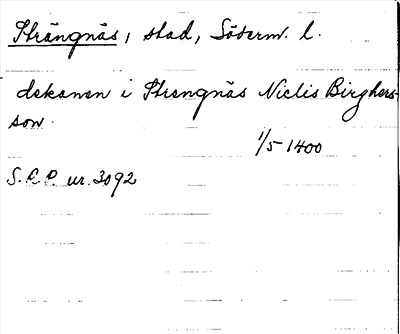 Strängnäs, stad, Söderm. l.
dekanen i Strengnäs Niclis Birghers-
son.
1/5 1400
S.R.P. nr. 3092